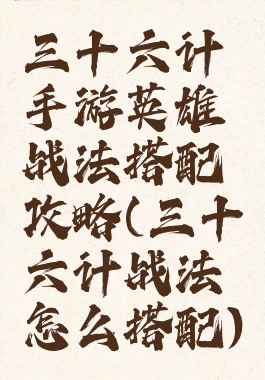 三十六计
手游英雄
战法搭配
攻略(三十
六计战法
怎么搭配)